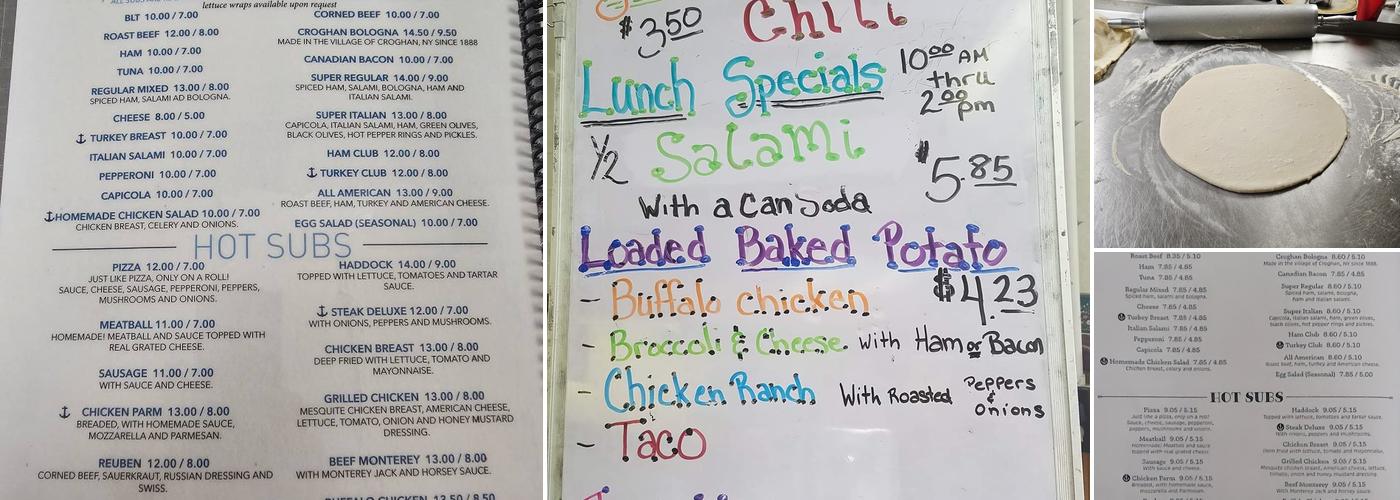 lettuce wraps available upon request
BLT 10.00 / 7.00
ROAST BEEF 12.00 / 8.00
HAM 10.00 / 7.00
TUNA 10.00 / 7.00
REGULAR MIXED 13.00 / 8.00
SPICED HAM, SALAMI AD BOLOGNA.
CHEESE 8.00 / 5.00
TURKEY BREAST 10.00 / 7.00
ITALIAN SALAMI 10.00 / 7.00
PEPPERONI 10.00 / 7.00
CAPICOLA 10.00 / 7.00
HOMEMADE CHICKEN SALAD 10.00 / 7.00
CHICKEN BREAST, CELERY AND ONIONS.
CORNED BEEF 10.00 / 7.00
CROGHAN BOLOGNA 14.50 / 9.50
MADE IN THE VILLAGE OF CROGHAN, NY SINCE 1888
CANADIAN BACON 10.00 / 7.00
SUPER REGULAR 14.00 / 9.00
SPICED HAM, SALAMI, BOLOGNA, HAM AND
ITALIAN SALAMI.
SUPER ITALIAN 13.00 / 8.00
CAPICOLA, ITALIAN SALAMI, HAM, GREEN OLIVES,
BLACK OLIVES, HOT PEPPER RINGS AND PICKLES.
HAM CLUB 12.00 / 8.00
TURKEY CLUB 12.00 / 8.00
ALL AMERICAN 13.00 / 9.00
ROAST BEEF, HAM, TURKEY AND AMERICAN CHEESE.
EGG SALAD (SEASONAL) 10.00 / 7.00
HOT SUBS
PIZZA 12.00 / 7.00
JUST LIKE PIZZA, ONLY ON A ROLL!
SAUCE, CHEESE, SAUSAGE, PEPPERONI, PEPPERS,
MUSHROOMS AND ONIONS.
MEATBALL 11.00 / 7.00
HOMEMADE! MEATBALL AND SAUCE TOPPED WITH
REAL GRATED CHEESE.
SAUSAGE 11.00 / 7.00
WITH SAUCE AND CHEESE.
CHICKEN PARM 13.00 / 8.00
BREADED, WITH HOMEMADE SAUCE,
MOZZARELLA AND PARMESAN.
REUBEN 12.00 / 8.00
CORNED BEEF, SAUERKRAUT, RUSSIAN DRESSING AND
SWISS.
HADDOCK 14.00 / 9.00
TOPPED WITH LETTUCE, TOMATOES AND TARTAR
SAUCE.
STEAK DELUXE 12.00 / 7.00
WITH ONIONS, PEPPERS AND MUSHROOMS.
CHICKEN BREAST 13.00 / 8.00
DEEP FRIED WITH LETTUCE, TOMATO AND
MAYONNAISE.
GRILLED CHICKEN 13.00 / 8.00
MESQUITE CHICKEN BREAST, AMERICAN CHEESE,
LETTUCE, TOMATO, ONION AND HONEY MUSTARD
DRESSING.
BEEF MONTEREY 13.00 / 8.00
WITH MONTEREY JACK AND HORSEY SAUCE.
BUFFALO CHICKEN 13.50 / 8.50
$3.50 Chili
Lunch Specials 10:00 AM
thru
2:00 pm
1/2 Salami $5.85
With a Can Soda
Loaded Baked Potato
- Buffalo chicken $4.23
- Broccoli & Cheese with Ham or Bacon
- Chicken Ranch With Roasted Peppers
& onions
- Taco
Roast Beef 8.35 / 5.10
Ham 7.85 / 4.85
Tuna 7.85 / 4.85
Regular Mixed 7.85 / 4.85
Spiced ham, salami and bologna.
Cheese 7.85 / 4.85
Turkey Breast 7.85 / 4.85
Italian Salami 7.85 / 4.85
Pepperoni 7.85 / 4.85
Capicola 7.85 / 4.85
Homemade Chicken Salad 7.85 / 4.85
Chicken breast, celery and onions.
Croghan Bologna 8.60 / 5.10
Made in the village of Croghan, NY since 1888.
Canadian Bacon 7.85 / 4.85
Super Regular 8.60 / 5.10
Spiced ham, salami, bologna,
ham and Italian salami.
Super Italian 8.60 / 5.10
Capicola, Italian salami, ham, green olives,
black olives, hot pepper rings and pickles.
Ham Club 8.60 / 5.10
Turkey Club 8.60 / 5.10
All American 8.60 / 5.10
Roast beef, ham, turkey and American cheese.
Egg Salad (Seasonal) 7.85 / 5.00
HOT SUBS
Pizza 9.05 / 5.15
Just like a pizza, only on a roll!
Sauce, cheese, sausage, pepperoni,
peppers, mushrooms and onions.
Meatball 9.05 / 5.15
Homemade! Meatball and sauce
topped with real grated cheese.
Sausage 9.05 / 5.15
With sauce and cheese.
Chicken Parm 9.05 / 5.15
Breaded, with homemade sauce,
mozzarella and Parmesan.
Haddock 9.05 / 5.15
Topped with lettuce, tomatoes and tartar sauce.
Steak Deluxe 9.05 / 5.15
With onions, peppers and mushrooms.
Chicken Breast 9.05 / 5.15
Deep fried with lettuce, tomato and mayonnaise.
Grilled Chicken 9.05 / 5.15
Mesquite chicken breast, American cheese, lettuce,
tomato, onion and honey mustard dressing.
Beef Monterey 9.05 / 5.15
With Monterey Jack and Horsey sauce